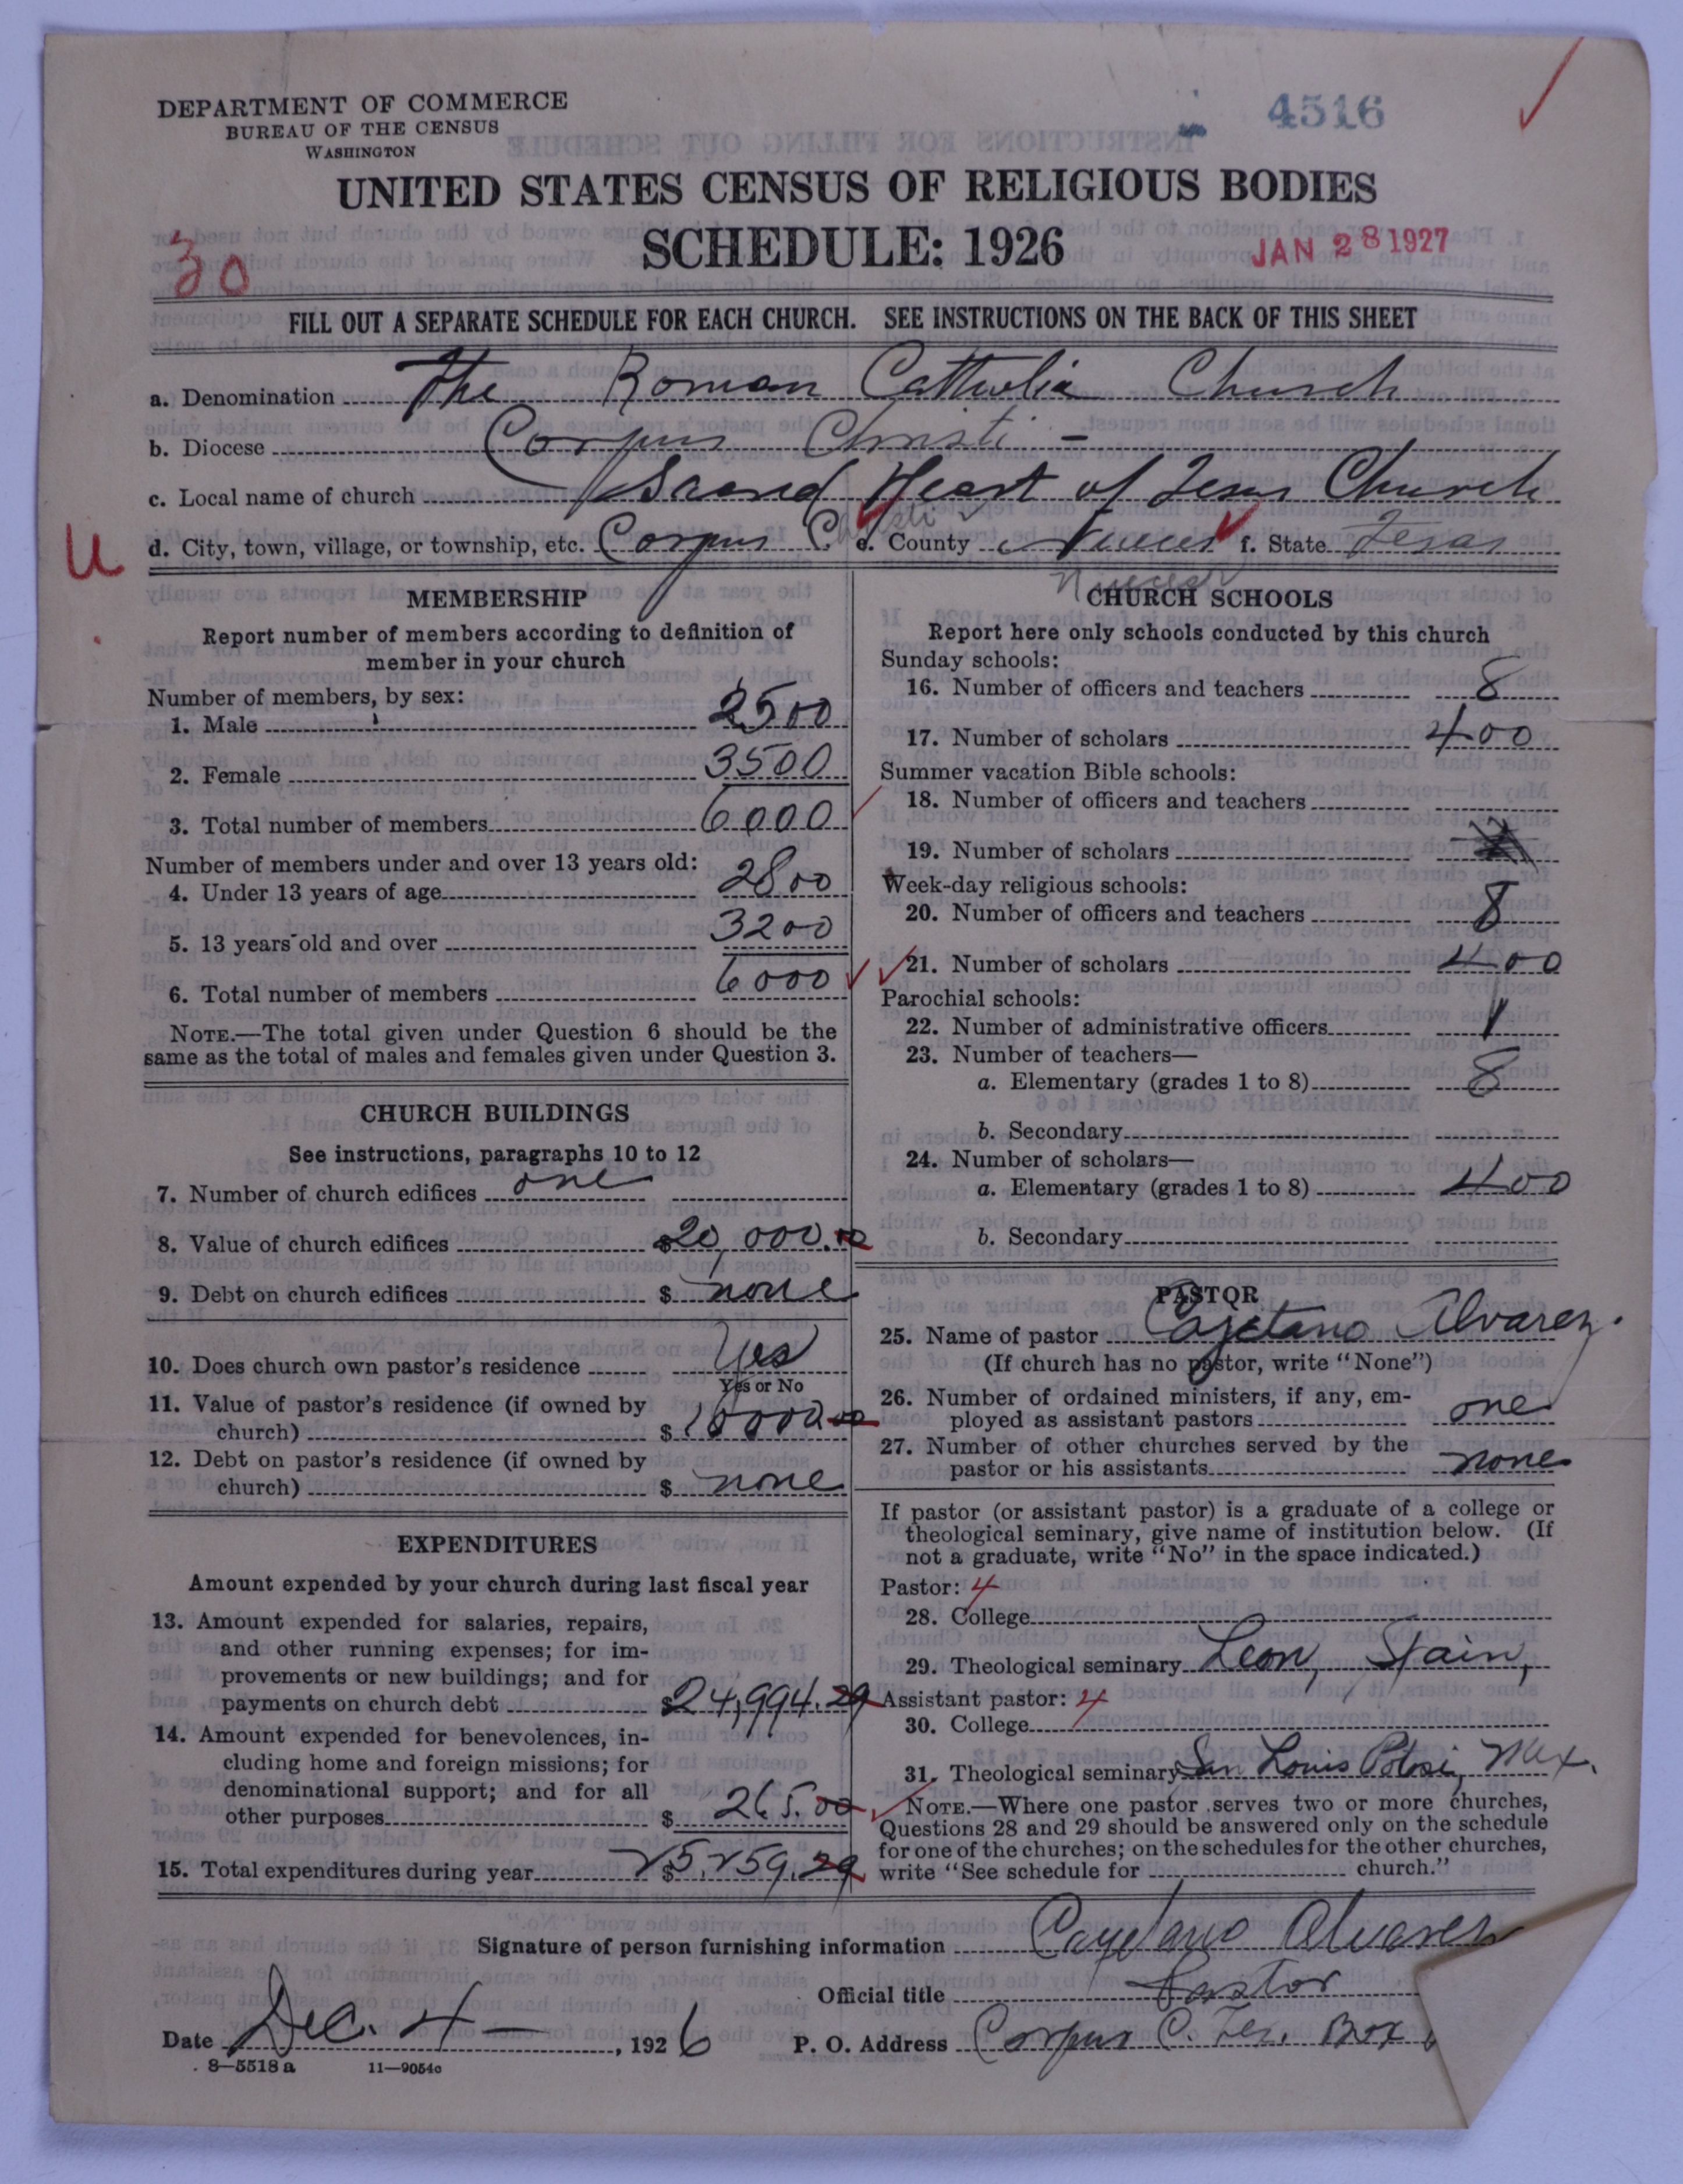 DEPARTMENT OF COMMERCE
BUREAU OF THE CENSUS
WASHINGTON
4516
UNITED STATES CENSUS OF RELIGIOUS BODIES
SCHEDULE: 1926
JAN 28 1927
30
FILL OUT A SEPARATE SCHEDULE FOR EACH CHURCH. SEE INSTRUCTIONS ON THE BACK OF THIS SHEET
a. Denomination The Roman Catholic Church
b. Diocese Corpus Christi -
c. Local name of church Sacred Heart of Jesus Church
U
d. City, town, village, or township, etc. Corpus Christi e. County Nueces f. State Texas
Nueces
MEMBERSHIP
Report number of members according to definition of
member in your church
Number of members, by sex:
1. Male 2500
2. Female 3500
3. Total number of members 6000
Number of members under and over 13 years old:
4. Under 13 years of age 2800
5. 13 years old and over 3200
6. Total number of members 6000
NOTE.—The total given under Question 6 should be the
same as the total of males and females given under Question 3.
CHURCH BUILDINGS
See instructions, paragraphs 10 to 12
7. Number of church edifices one
8. Value of church edifices $20,000.00
9. Debt on church edifices $ none
10. Does church own pastor's residence Yes
Yes or No
11. Value of pastor's residence (if owned by
church) $ 10000.00
12. Debt on pastor's residence (if owned by
church) $ none
EXPENDITURES
Amount expended by your church during last fiscal year
13. Amount expended for salaries, repairs,
and other running expenses; for im-
provements or new buildings; and for
payments on church debt $24,994.29
14. Amount expended for benevolences, in-
cluding home and foreign missions; for
denominational support; and for all
other purposes $ 265.00
15. Total expenditures during year $25,259.29
CHURCH SCHOOLS
Report here only schools conducted by this church
Sunday schools:
16. Number of officers and teachers 8
17. Number of scholars 400
Summer vacation Bible schools:
18. Number of officers and teachers
19. Number of scholars
Week-day religious schools:
20. Number of officers and teachers 8
21. Number of scholars 400
Parochial schools:
22. Number of administrative officers 1
23. Number of teachers—
a. Elementary (grades 1 to 8) 8
b. Secondary
24. Number of scholars—
a. Elementary (grades 1 to 8) 400
b. Secondary
PASTOR
25. Name of pastor Cayetano Alvarez.
(If church has no pastor, write "None")
26. Number of ordained ministers, if any, em-
ployed as assistant pastors one
27. Number of other churches served by the
pastor or his assistants none
If pastor (or assistant pastor) is a graduate of a college or
theological seminary, give name of institution below. (If
not a graduate, write "No" in the space indicated.)
Pastor: 4
28. College
29. Theological seminary Leon, Spain,
Assistant pastor: 4
30. College
31. Theological seminary San Louis Potosi, Mex.
NOTE.—Where one pastor serves two or more churches,
Questions 28 and 29 should be answered only on the schedule
for one of the churches; on the schedules for the other churches,
write "See schedule for church."
Signature of person furnishing information Cayetano Alvarez
Official title Pastor
Date Dec. 4 — , 1926 P. O. Address Corpus C. Tex. Box
8—5518 a 11—9054c